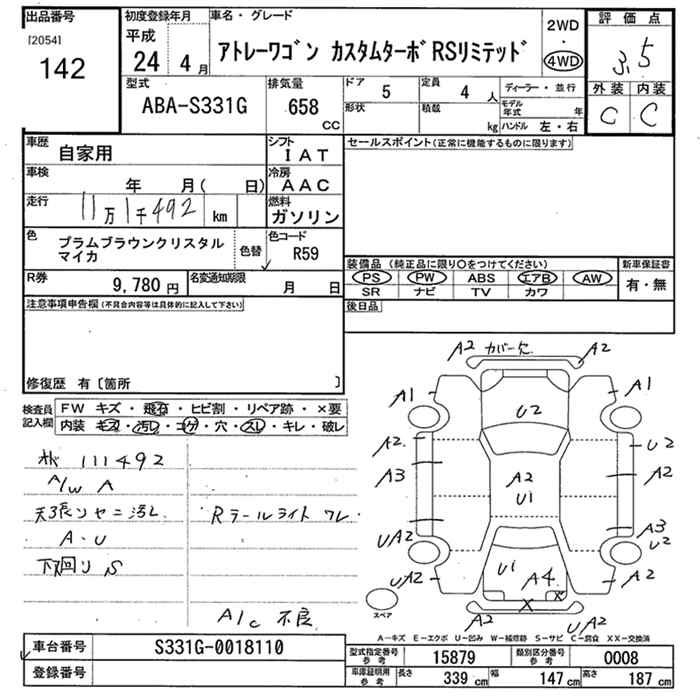 出品番号
[2054]
142
初度登録年月
平成
24 4月
車名・グレード
アトレーワゴン カスタムターボRSリミテッド
2WD
・
4WD
評価点
3.5
外装 内装
C C
型式
ABA-S331G
排気量
658
CC
ドア
5
定員
4 人
形状
積載
kg
ディーラー・並行
モデル年式 年
ハンドル 左・右
車歴
自家用
シフト
IAT
車検
年 月( 日)
冷房
AAC
走行
11万1千492 km
燃料
ガソリン
色
プラムブラウンクリスタル
マイカ
色替
色コード
R59
R券
9,780 円
名変通知期限
月 日
セールスポイント(正常に機能するものに限ります)
装備品 (純正品に限り○をつけてください)
PS PW ABS エアB AW
SR ナビ TV カワ
新車保証書
有・無
後日品
注意事項申告欄(不具合内容等は具体的に記入して下さい)
修復歴 有〔箇所 〕
検査員
記入欄
FW キズ・飛石・ヒビ割・リペア跡・×要
内装 キズ・汚レ・コゲ・穴・スレ・キレ・破レ
111492
A/W A
天張リヤニ汚レ
A・U
下回りS
Rテールライト ワレ
A/C 不良
A2 カバー欠 A2
A1 A1
U2
A2 U2
A3 A2 A2
U1
A3
UA2 U2
U1 A4
UA2 A2
X X
A2 UA2
スペア
A-キズ E-エクボ U-凹み W-補修跡 S-サビ C-腐食 XX-交換済
車台番号
S331G-0018110
登録番号
型式指定番号
参考
15879
類別区分番号
参考
0008
車庫証明用
参考
長さ 339 cm 幅 147 cm 高さ 187 cm